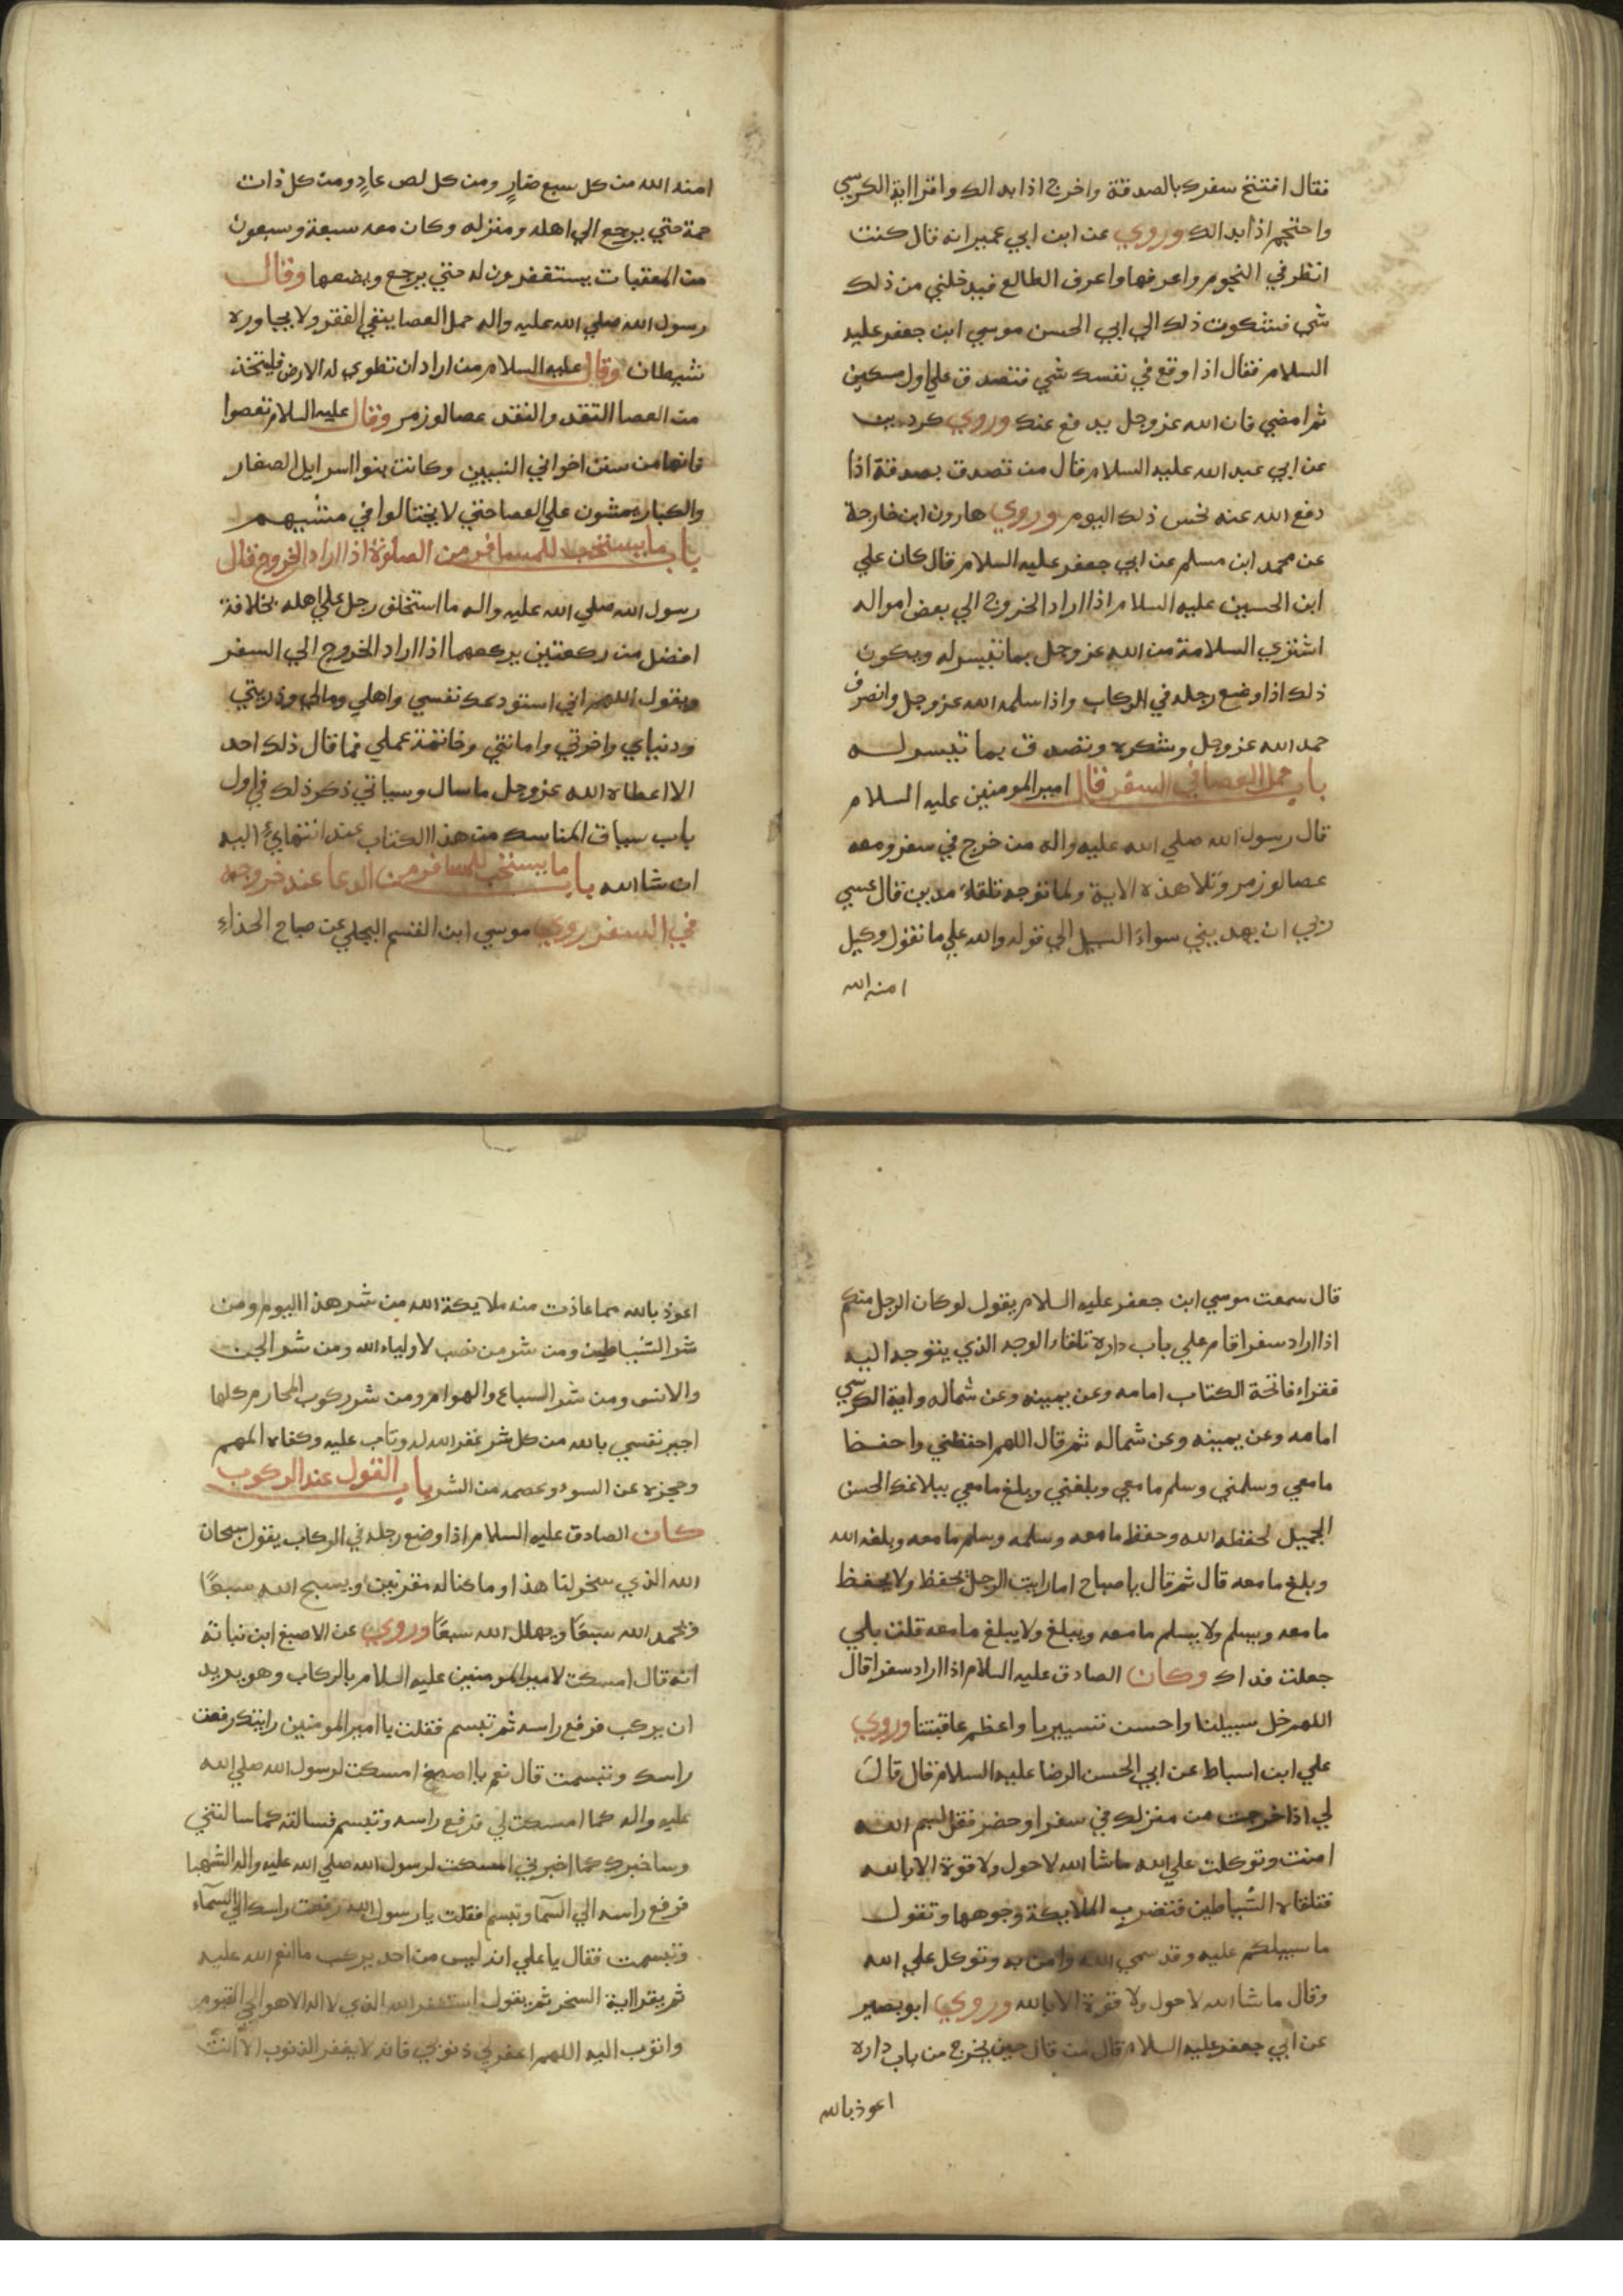 فقال افتتح سفرك بالصدقة واخرج اذا بدا لك واقرا اية الكرسي
واحتجم اذا بدا لك وروي عن ابن ابي عمير انه قال كنت
انظر في النجوم واعرفها واعرف الطالع فيدخلني من ذلك
شي فشكوت ذلك الي ابي الحسن موسي ابن جعفر عليه
السلام فقال اذا وقع في نفسك شي فتصدق علي اول مسكين
ثم امضي فان الله عز وجل يدفع عنك وروي كردين
عن ابي عبد الله عليه السلام قال من تصدق بصدقة اذا
دفع الله عنه نحس ذلك اليوم وروي هارون ابن خارجة
عن محمد ابن مسلم عن ابي جعفر عليه السلام قال كان علي
ابن الحسين عليه السلام اذا اراد الخروج الي بعض امواله
اشتري السلامة من الله عز وجل بما تيسر له ويكون
ذلك اذا وضع رجله في الركاب واذا سلمه الله عز وجل وانصرف
حمد الله عز وجل وشكره وتصدق بما تيسر له
باب حمل العصا في السفر قال امير المومنين عليه السلام
قال رسول الله صلي الله عليه واله من خرج في سفر ومعه
عصا لوز مر وتلا هذه الاية ولما توجه تلقاء مدين قال عسي
ربي ان يهديني سواء السبيل الي قوله والله علي ما نقول وكيل
امنه الله
امنه الله من كل سبع ضارٍ ومن كل لص عادٍ ومن كل ذات
حمة حتي يرجع الي اهله ومنزله وكان معه سبعة وسبعون
من المعقبات يستغفرون له حتي يرجع ويضعها وقال
رسول الله صلي الله عليه واله حمل العصا ينفي الفقر ولا يجاوره
شيطان وقال عليه السلام من اراد ان تطوي له الارض فليتخذ
من العصا النقد والنقد عصا لوز مر وقال عليه السلام تعصوا
فانها من سنن اخواني النبيين وكانت بنوا اسرايل الصغار
والكبار يمشون علي العصا حتي لا يختالوا في مشيهم
باب ما يستحب للمسافر من الصلوة اذا اراد الخروج قال
رسول الله صلي الله عليه واله ما استخلف رجل علي اهله بخلافة
افضل من ركعتين يركعهما اذا اراد الخروج الي السفر
ويقول اللهم اني استودعك نفسي واهلي ومالي وذريتي
ودنياي واخرتي وامانتي وخاتمة عملي فما قال ذلك احد
الا اعطاه الله عز وجل ما سال وسياتي ذكر ذلك في اول
باب سياق المناسك من هذا الكتاب عند انتهائ اليه
ان شا الله باب ما يستحب للمسافر من الدعا عند خروجه
في السفر روي موسي ابن القسم البجلي عن صباح الحذاء
قال سمعت موسي ابن جعفر عليه السلام يقول لو كان الرجل منكم
اذا اراد سفرا قام علي باب داره تلقاء الوجه الذي يتوجه اليه
فقراء فاتحة الكتاب امامه وعن يمينه وعن شماله واية الكرسي
امامه وعن يمينه وعن شماله ثم قال اللهم احفظني واحفظ
ما معي وسلمني وسلم ما معي وبلغني وبلغ ما معي ببلاغك الحسن
الجميل لحفظه الله وحفظ ما معه وسلمه وسلم ما معه وبلغه الله
وبلغ ما معه قال ثم قال يا صباح اما رايت الرجل يحفظ ولا يحفظ
ما معه ويسلم ولا يسلم ما معه ويبلغ ولا يبلغ ما معه قلت بلي
جعلت فداك وكان الصادق عليه السلام اذا اراد سفرا قال
اللهم خل سبيلنا واحسن تسييرنا واعظم عاقبتنا وروي
علي ابن اسباط عن ابي الحسن الرضا عليه السلام قال قال
لي اذا خرجت من منزلك في سفر او حضر فقل بسم الله
امنت وتوكلت علي الله ما شا الله لا حول ولا قوة الا بالله
فتلقاه الشياطين فتضرب الملايكة وجوهها وتقول
ما سبيلكم عليه وقد سمي الله وامن به وتوكل علي الله
وقال ما شا الله لا حول ولا قوة الا بالله وروي ابو بصير
عن ابي جعفر عليه السلام قال من قال حين يخرج من باب داره
اعوذ بالله
اعوذ بالله مما عاذت منه ملايكة الله من شر هذا اليوم ومن
شر الشياطين ومن شر من نصب لاولياء الله ومن شر الجن
والانس ومن شر السباع والهوام ومن شر ركوب المحارم كلها
اجير نفسي بالله من كل شر غفر الله له وتاب عليه وكفاه المهم
وحجزه عن السوء وعصمه من الشر باب القول عند الركوب
كان الصادق عليه السلام اذا وضع رجله في الركاب يقول سبحان
الله الذي سخر لنا هذا وما كنا له مقرنين ويسبح الله سبعًا
ويحمد الله سبعًا ويهلل الله سبعًا وروي عن الاصبغ ابن نباتة
انه قال امسكت لامير المومنين عليه السلام بالركاب وهو يريد
ان يركب فرفع راسه ثم تبسم فقلت يا امير المومنين رايتك رفعت
راسك وتبسمت قال نعم يا اصبغ امسكت لرسول الله صلي الله
عليه واله كما امسكت لي فرفع راسه وتبسم فسالته كما سالتني
وساخبرك كما اخبرني امسكت لرسول الله صلي الله عليه واله الشهبا
فرفع راسه الي السما وتبسم فقلت يا رسول الله رفعت راسك الي السماء
وتبسمت فقال يا علي انه ليس من احد يركب ما انعم الله عليه
ثم يقرا اية السخر ثم يقول استغفر الله الذي لا اله الا هو الحي القيوم
واتوب اليه اللهم اغفر لي ذنوبي فانه لا يغفر الذنوب الا انت